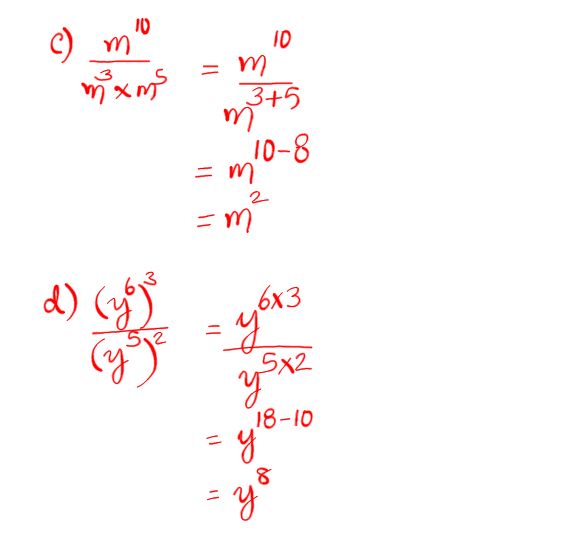 c) m^10 / m^3 × m^5 = m^10 / m^3+5
= m^10-8
= m^2
d) (y^6)^3 / (y^5)^2 = y^6×3 / y^5×2
= y^18-10
= y^8